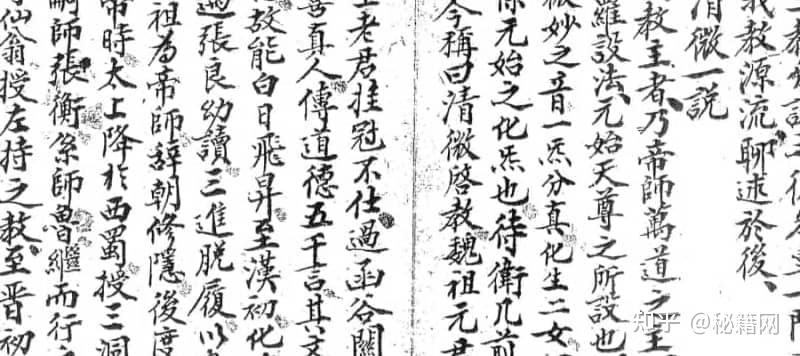 我教源流聊述於後、
清微一説
教主者、乃帝師萬道之主
羅設法、元始天尊之所設也
微妙之音一炁分真化生二女
元始之化炁也待衛几前
今稱曰清微啓教魏祖元君
老君挂冠不仕過函谷關
喜真人傳道德五千言其文
故能白日飛昇至漢初化
過張良幼讀三進脱履以
祖為帝師辭朝修隱後度
帝時太上降於西蜀授三洞
嗣師張衡系師魯繼而行
仙翁授左持之教至晉初
知乎 @秘籍网